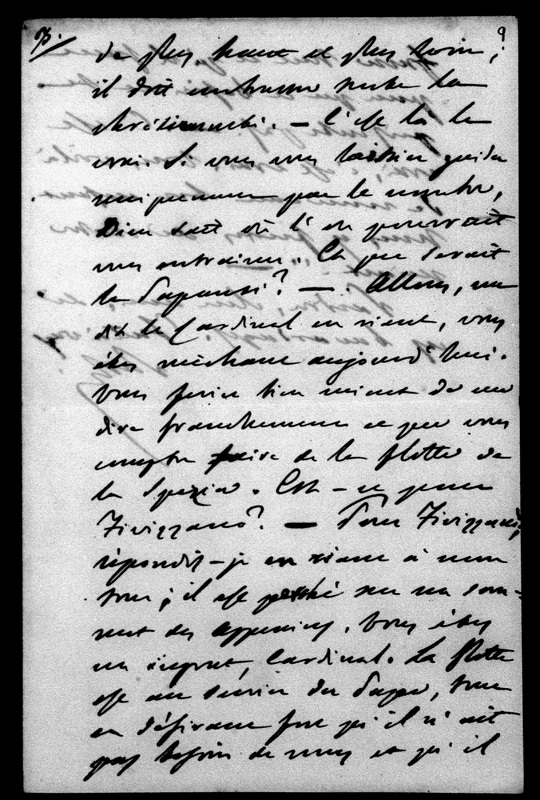 93. 9
de plus haut et plus loin;
il doit embrasser toute la
chrétienneté. — C'est là le
vrai. Si vous vous laissiez guider
uniquement par le nombre,
Dieu sait où l'on pourrait
vous entrainer. Ce que serait
la Papauté? — Allons, me
dit le Cardinal en riant, vous
êtes méchant aujourd'hui.
Vous feriez bien mieux de me
dire franchement ce que vous
comptez faire de la flotte de
la Spezia. Est-ce pour
Fivizzano? — Pour Fivizzano,
répondis-je en riant à mon
tour; il est perché sur un som-
met des Appenins. Vous êtes
un ingrat, Cardinal. La flotte
est au service du Pape, tout
en désirant fort qu'il n'ait
pas besoin de nous et qu'il